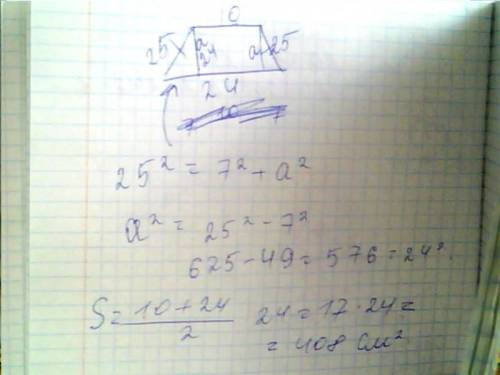 10
25 a a 25
24
24
25² = 7² + a²
a² = 25² - 7²
625 - 49 = 576 = 24²
S = (10 + 24)/2 24 = 17 · 24 =
= 408 см²